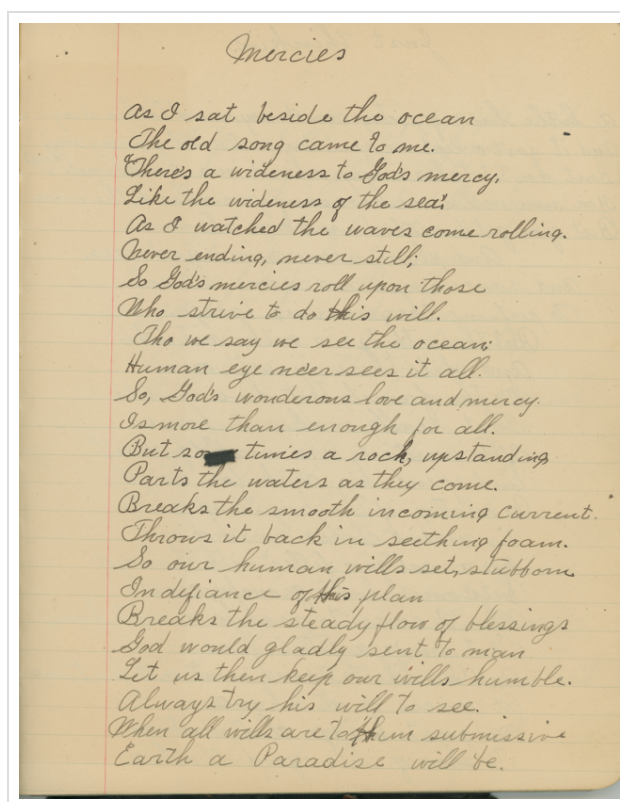 Mercies
As I sat beside the ocean
The old song came to me.
"There's a wideness to God's mercy,
Like the wideness of the sea".
As I watched the waves come rolling.
Never ending, never still;
So God's mercies roll upon those
Who strive to do his will.
Tho we say we see the ocean;
Human eye ne'er sees it all.
So, God's wonderous love and mercy
Is more than enough for all.
But so times a rock, upstanding
Parts the waters as they come.
Breaks the smooth incoming current.
Throws it back in seething foam.
So our human wills set, stubborn
In defiance of his plan
Breaks the steady flow of blessings
God would gladly sent to man
Let us then keep our wills humble.
Always try his will to see.
When all wills are to him submissive
Earth a Paradise will be.